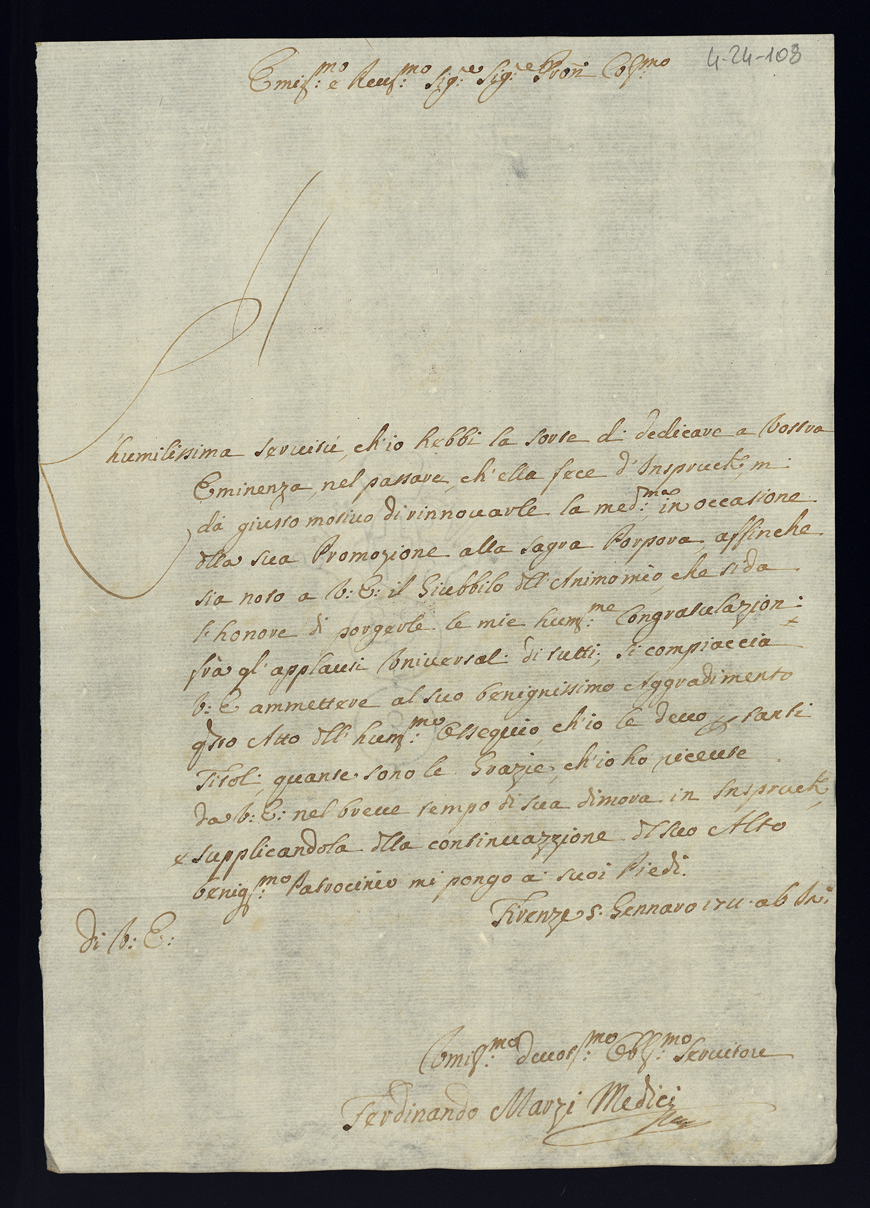 4-24-108
Emiss:mo e Reuss:mo Sig:e Sig:e Pron Col:mo
L'humilissima seruitù, ch'io hebbi la sorte di dedicare a Vostra
Eminenza, nel passare, ch'ella fece d'Inspruck, mi
dà giusto motiuo di rinnouarle la med:ma in occasione
della sua Promozione alla sagra Porpora, affinche
sia noto a V: E: il Giubbilo dell'Animo mio, che si da
l'honore di porgerle le mie hum:me Congratulazioni
frà gl'applausi Vniuersali di tutti; Si compiaccia
V: E ammettere al suo benignissimo Aggradimento
qsto Atto dell'hum:mo Ossequio ch'io le deuo per tanti
Titoli, quante sono le Grazie, ch'io ho riceuute
da V: E: nel breue tempo di sua dimora in Inspruck,
e supplicandola della continuazzione del suo Alto
benig:mo Patrocinio mi pongo a suoi Piedi.
Firenze 5: Gennaro 1711. ab Inc:
di V: E:
Vmiss:mo deuot:mo Obl:mo Seruitore
Ferdinando Marzi Medici